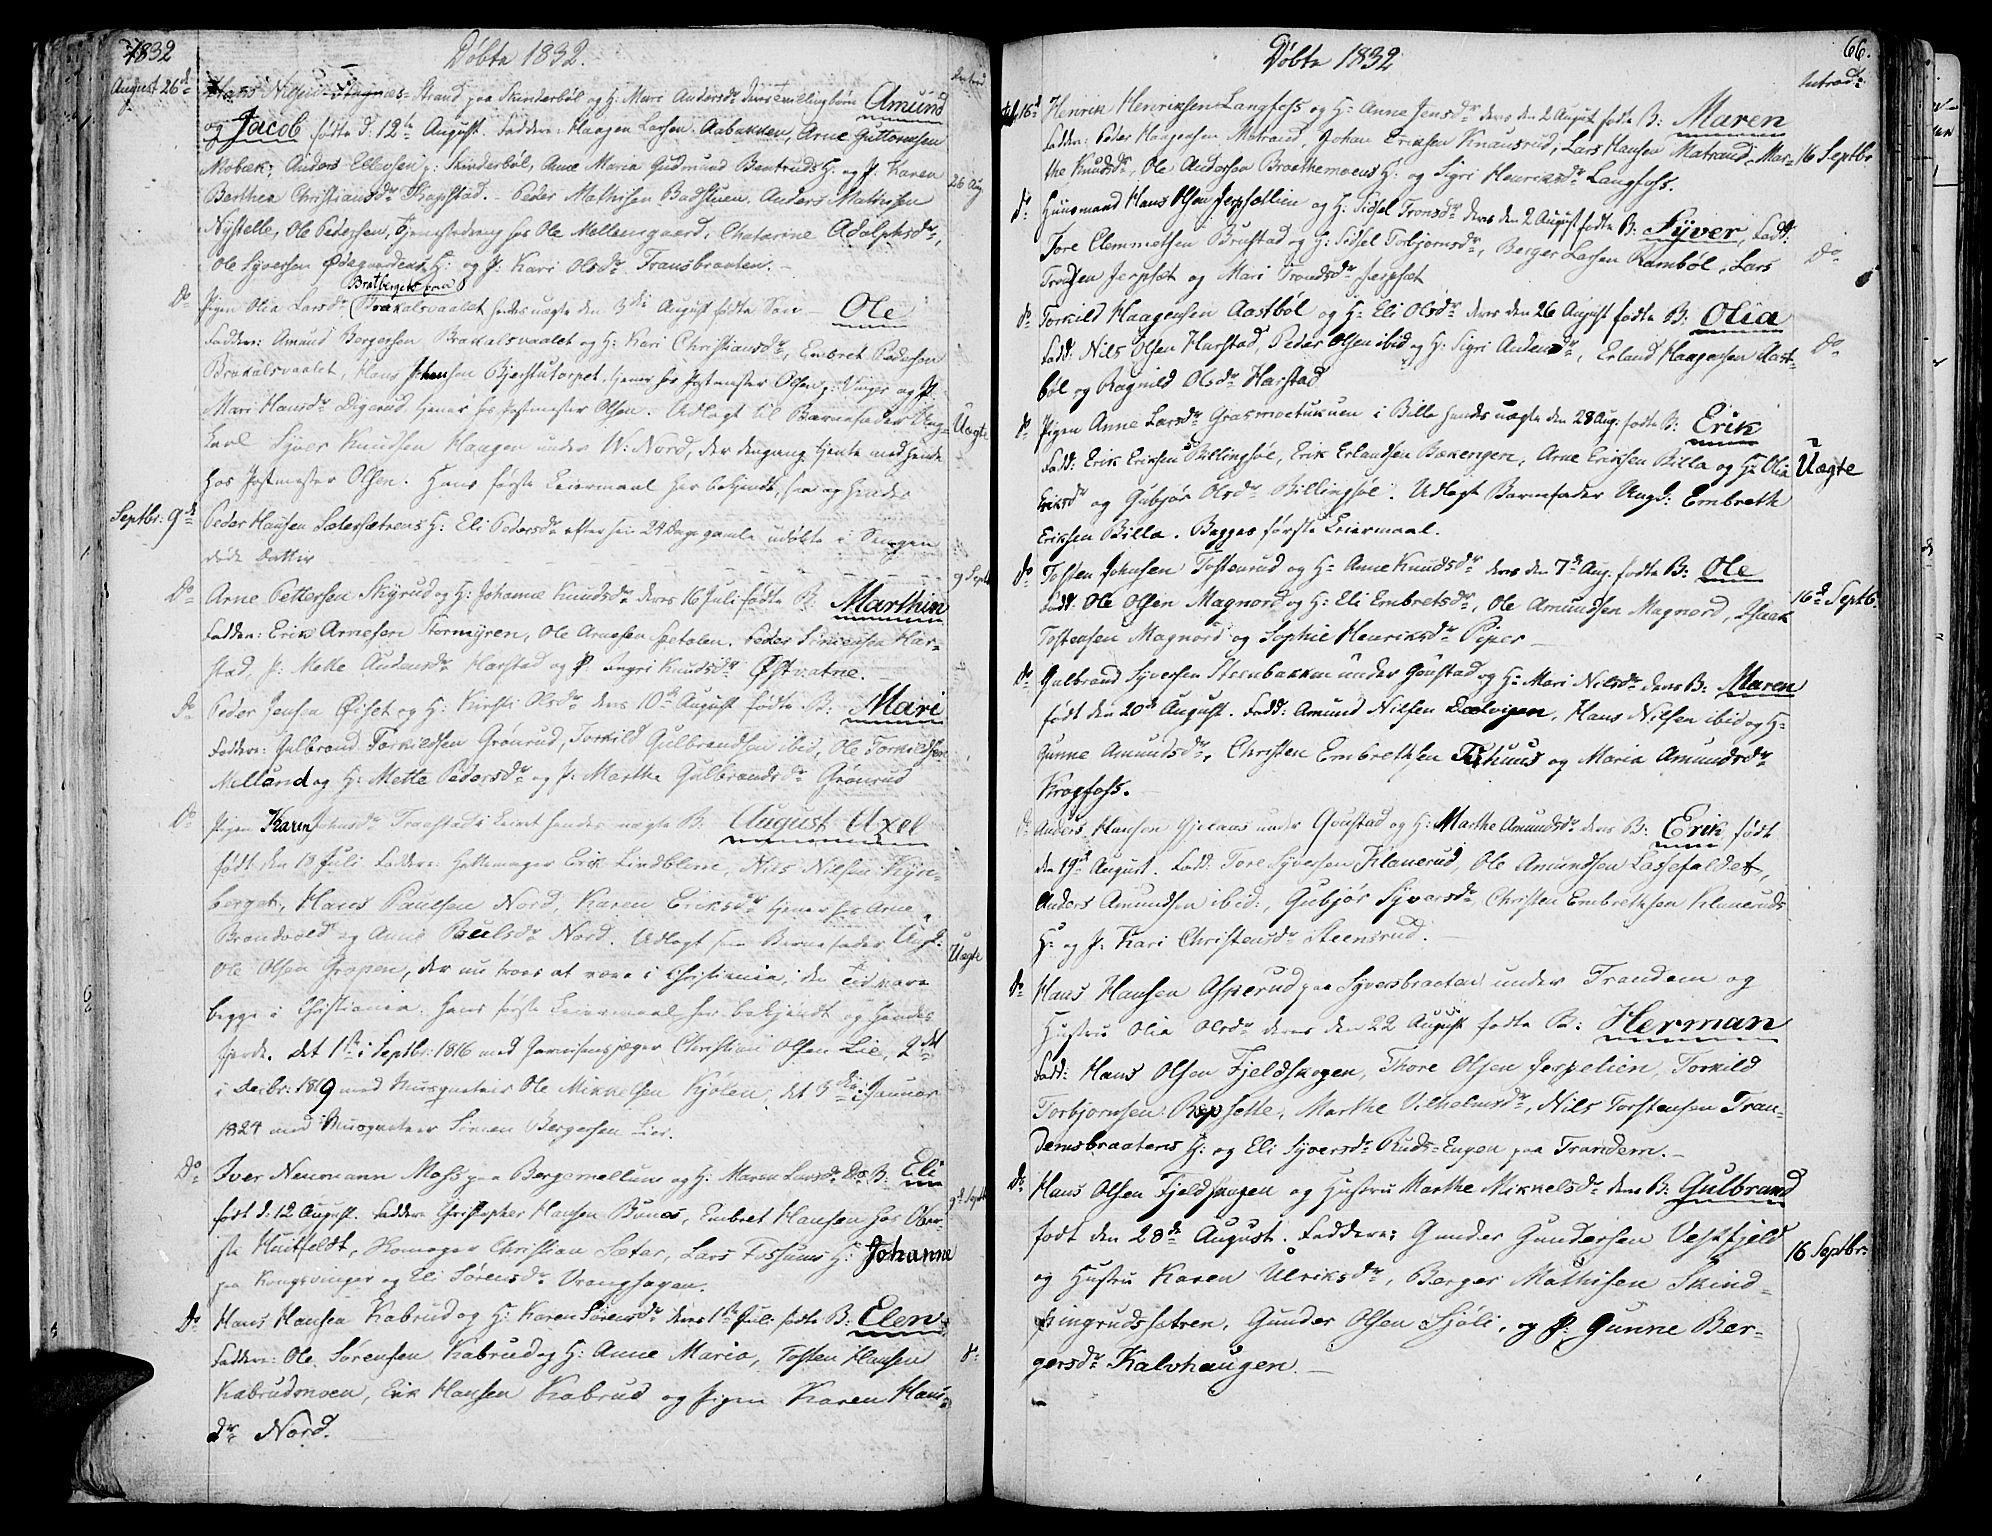 1832
Døbte 1832.
August 26d
Strand paa Skinderböl og H: Mari Andersdr deres Tvillingbörn Amund
og Jacob fødte d. 12te August. Faddere: Haagen Larsen Aabakken, Arne Guttormsen
Mobæk, Anders Ellevsen Skinderböl, Anne Maria Gudmund Bentruds H: og P. Karen
26 Aug.
Berthea Christiansdr Skapstad. - Peder Mathisen Badstuen, Anders Mathisen
Nystelle, Ole Pedersen, hos Ole Mellemgaard, Chatarine Adolphsdr,
Ole Syversen Ødegaardens H: og P: Kari Olsdr Fransbraaten.
Do Pigen Olia Larsdr Brakalsvaalet hendes uægte den 3die August fødte Søn - Ole
Faddere: Amund Bergersen Brakalsvaalet og H: Kari Christiansdr, Embret Pedersen
Brakalsvaalet, Hans Johansen Gjerstutorpet, tjener hos Postmester Olsen p: Vinger og P:
Mari Hansdr Digerud, tjener hos Postmester Olsen. Udlagt til Barnefader Ung-
Uægte
karl Syver Knudsen Haagen under W: Nord, der dengang tjente med hende
hos Postmester Olsen. Hans første Leiermaal her bekjendt, saa og hendes
Septbr: 9de Peder Hansen Sætersætrens H: Eli Pedersdr efter sin 24 Dage gamle udøbte i Sengen
døde Datter
9 Septb
Do Arne Pettersen Skyrud og H: Johanne Knudsdr deres 16 Juli fødte B: Marthin
Faddere: Erik Arnesen Stormyren, Ole Arnesen Setolen, Peder Simensen Har-
stad, P: Mette Andersdr Harstad og P. Ingri Knudsdr Østvatne.
Do Peder Jensen Øiset og H: Kirsti Olsdr deres 10de August fødte B: Mari
Faddere: Gulbrand Torkildsen Grönrud, Torkild Gulbrandsen ibid, Ole Torkildsen
Melland og H: Mette Pedersdr og P: Marthe Gulbrandsdr Grönrud
Do Pigen Karen Johnsdr Traastad i Leiret hendes uægte B: August Axel
født den 18 Juli. Faddere: Hattemager Erik Lindblem, Nils Nilsen Kyn-
berget, Hans Paulsen Nord, Karen Eriksdr tjener hos Arne
Brandvold og Anne Paulsdr Nord. Udlagt som Barnefader Ungk:
Uægte
Ole Olsen Gropen, der nu troes at være i Christiania, den Tid vare
begge i Christiania. Hans første Leiermaal her bekjendt og hendes
fjerde. Det 1ste i Septbr: 1816 med Garnisonsjæger Christian Olsen Lie, 2det
i Decbr: 1819 med Musqueteer Ole Mikkelsen Kjølen, det 3die i Januar
1824 med Musqueteer Simen Bergersen Lier.
Do Iver Neumann Moss paa Bergemellum og H: Maren Larsdr Ds B: Eli
født d. 12 August. Faddere Christopher Hansen Bunes, Embret Hansen hos Ober-
9d Septb
ste Huitfeldt, Skomager Christian Sæter, Lars Fossums H: Johanne
paa Kongsvinger og Eli Sörensdr Vranghagen.
Do Hans Hansen Kabrud og H: Karen Sörensdr deres 1ste Juli fødte B: Elen.
Faddere: Ole Sørensen Kabrud og H: Anne Maria, Tosten Hansen
Do
Kabrudmoen, Erik Hansen Kabrud og Pigen Karen Hans-
dr Nord.
Døbte 1832
66.
Introd:
16d Henrik Henriksen Langfoss og H: Anne Jensdr deres den 2 August fødte B: Maren
Fadder: Peder Haagensen Matrand, Johan Eriksen Knausrud, Lars Hansen Matrand, Mar-
16 Septbr
the Knudsdr, Ole Andersen Braathemoens H: og Sigri Henriksdr Langfoss.
Do Huusmand Hans Olsen Jerpsetlien og H: Sidsel Tronsdr deres den 2 August fødte B: Syver, Fadd:
Tore Clemmetsen Brustad og H: Sidsel Torbjørnsdr, Berger Larsen Ramböl, Lars
Do
Trondsen Jerpset og Mari Trondsdr Jerpset
Do Torkild Haagensen Aastböl og H: Eli Olsdr deres den 26 August fødte B: Olia
Fadd: Nils Olsen Harstad, Peder Olsen ibid og H: Sigri Andersdr, Erland Haagensen Aast-
Do
böl og Ragnild Olsdr Harstad
Do Pigen Anne Larsdr Grasmoetukuen i Billa hendes uægte den 28 Aug. fødte B: Erik
Fadd: Erik Eriksen Billingsöe, Erik Erlandsen Bækengen, Arne Eriksen Billa og H: Olia
Uægte
Eriksdr og Gubjør Olsdr Billingsöe. Udlagt Barnefader Ungk: Embreth
Eriksen Billa. Begges første Leiermaal.
Do Tosten Johnsen Tostenrud og H: Anne Knudsdr deres den 7de Aug. fødte B: Ole
Fadd: Ole Olsen Magnord og H: Eli Embretsdr, Ole Amundsen Magnord, Isaak
16d Septb.
Tostensen Magnord og Sophie Henriksdr Piper -
Do Gulbrand Syversen Steenbakken under Goustad og H: Mari Nilsdr deres B: Maren
født den 20de August. Fadd: Amund Nilsen Dælvigen, Hans Nilsen ibid og H:
Gunne Amundsdr, Christen Embrethsen Fiskhuus og Maria Amundsdr
Krogfoss. -
Do Anders Hansen Gjelaas under Goustad og H: Marthe Amundsdr deres B: Erik født
den 19de August. Fadd: Tore Syversen Klanerud, Ole Amundsen Lassefaldet,
Anders Amundsen ibid:, Gubjør Syversdr, Christen Embrethsen Klaneruds
H: og P: Kari Christensdr Steensrud. -
Do Hans Hansen Asperud paa Syversbraaten under Trandem og
Hustru Olia Olsdr deres den 22 August fødte B: Herman
Fadd: Hans Olsen Fjeldskogen, Thore Olsen Jerpelien, Torkild
Torbjørnsen Repsette, Marthe Vilhelmsdr, Nils Torstensen Tran-
demsbraatens H: og Eli Syversdr Ruds-Engen paa Trandem. -
Do Hans Olsen Fjeldskogen og Hustru Marthe Mikkelsdr deres B: Gulbrand
født den 28de August. Faddere: Gunder Gundersen Vestfjeld
16 Septbr:
og Hustru Karen Ulriksdr, Berger Mathisen Skind-
pingrudsætren, Gunder Olsen Sjøli, og P: Gunne Ber-
gersdr Kalvhaugen. -